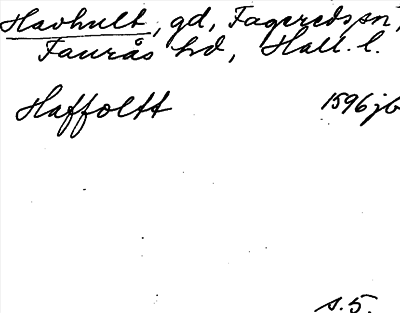 Havhult, gd, Fageredssn,
Faurås hd, Hall. l.
Haffoltt 1596 jb
s. 5.